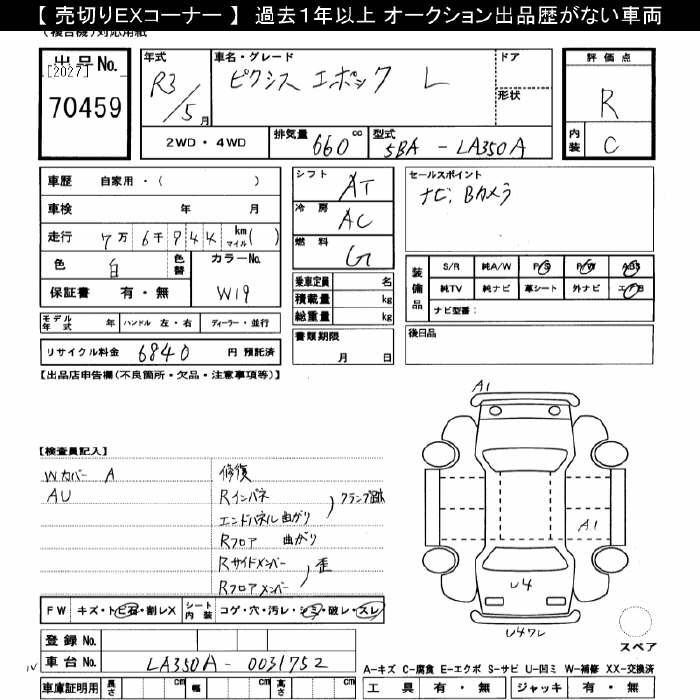 【 売切りEXコーナー 】 過去1年以上 オークション出品歴がない車両
(複合機)対応用紙
出品No.
[2027]
70459
年式
R3/5月
車名・グレード
ピクシス エポック L
ドア
形状
2WD・4WD
排気量 660 cc
型式 5BA - LA350A
評価点
R
内装 C
車歴 自家用・( )
車検 年 月
走行 7万6千944 km マイル( )
色 白 色替 カラーNo.
保証書 有・無 W19
モデル年式 年 ハンドル 左・右 ディーラー・並行
リサイクル料金 6840 円 預託済
シフト AT
冷房 AC
燃料 G
乗車定員 名
積載量 kg
総重量 kg
書類期限
月 日
セールスポイント
ナビ、Bカメラ
装備品
S/R 純A/W P/S P/W ABS
純TV 純ナビ 革シート 外ナビ エアB
ナビ型番:
後日品
【出品店申告欄(不良箇所・欠品・注意事項等)】
【検査員記入】
Wカバー A
AU
修復
Rインパネ
エンドパネル 曲がり
クランプ跡
Rフロア 曲がり
Rサイドメンバー
Rフロアメンバー
歪
FW キズ・トビ石・割レX シート内装 コゲ・穴・汚レ・シミ・破レ・スレ
登録No.
車台No. LA350A - 0031752
車庫証明用 長さ cm 幅 cm 高さ cm
A1
A1
U4
U4ワレ
スペア
A-キズ C-腐食 E-エクボ S-サビ U-凹ミ W-補修 XX-交換済
工具 有・無 ジャッキ 有・無